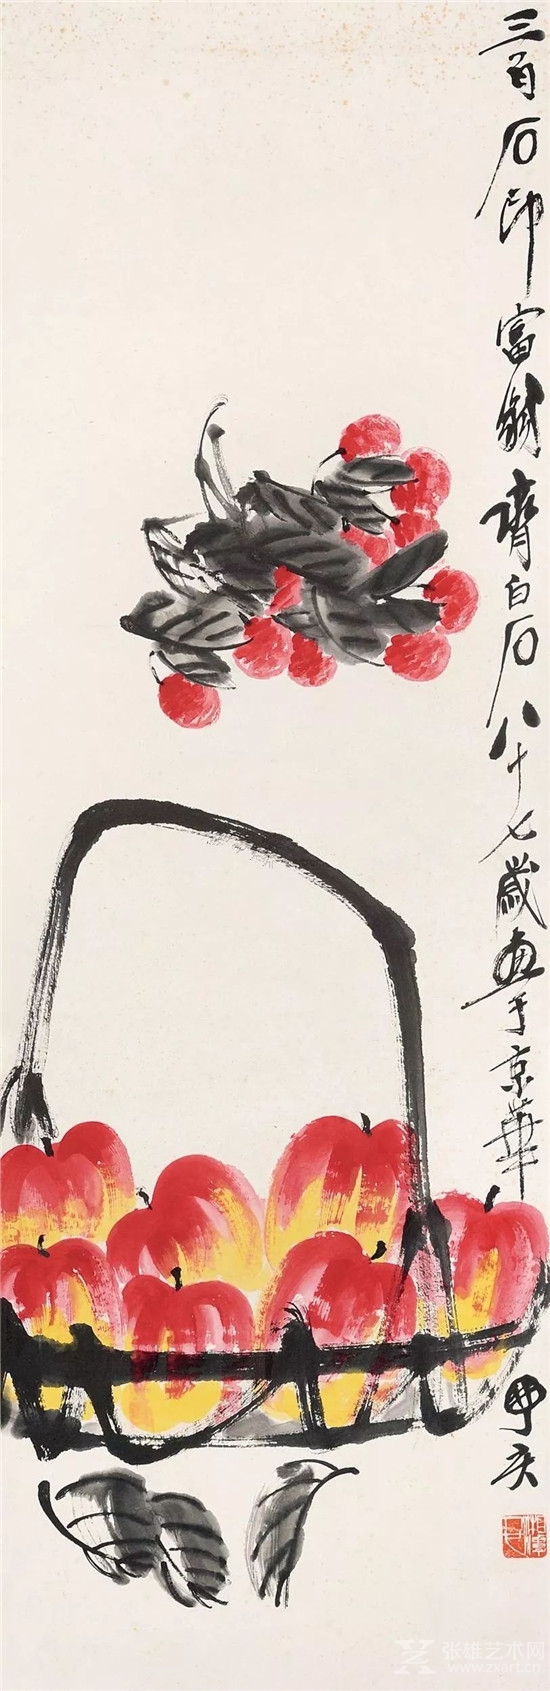 三百石印富翁齊白石八十七歲画于京華
张雄艺术网
www.zxart.cn